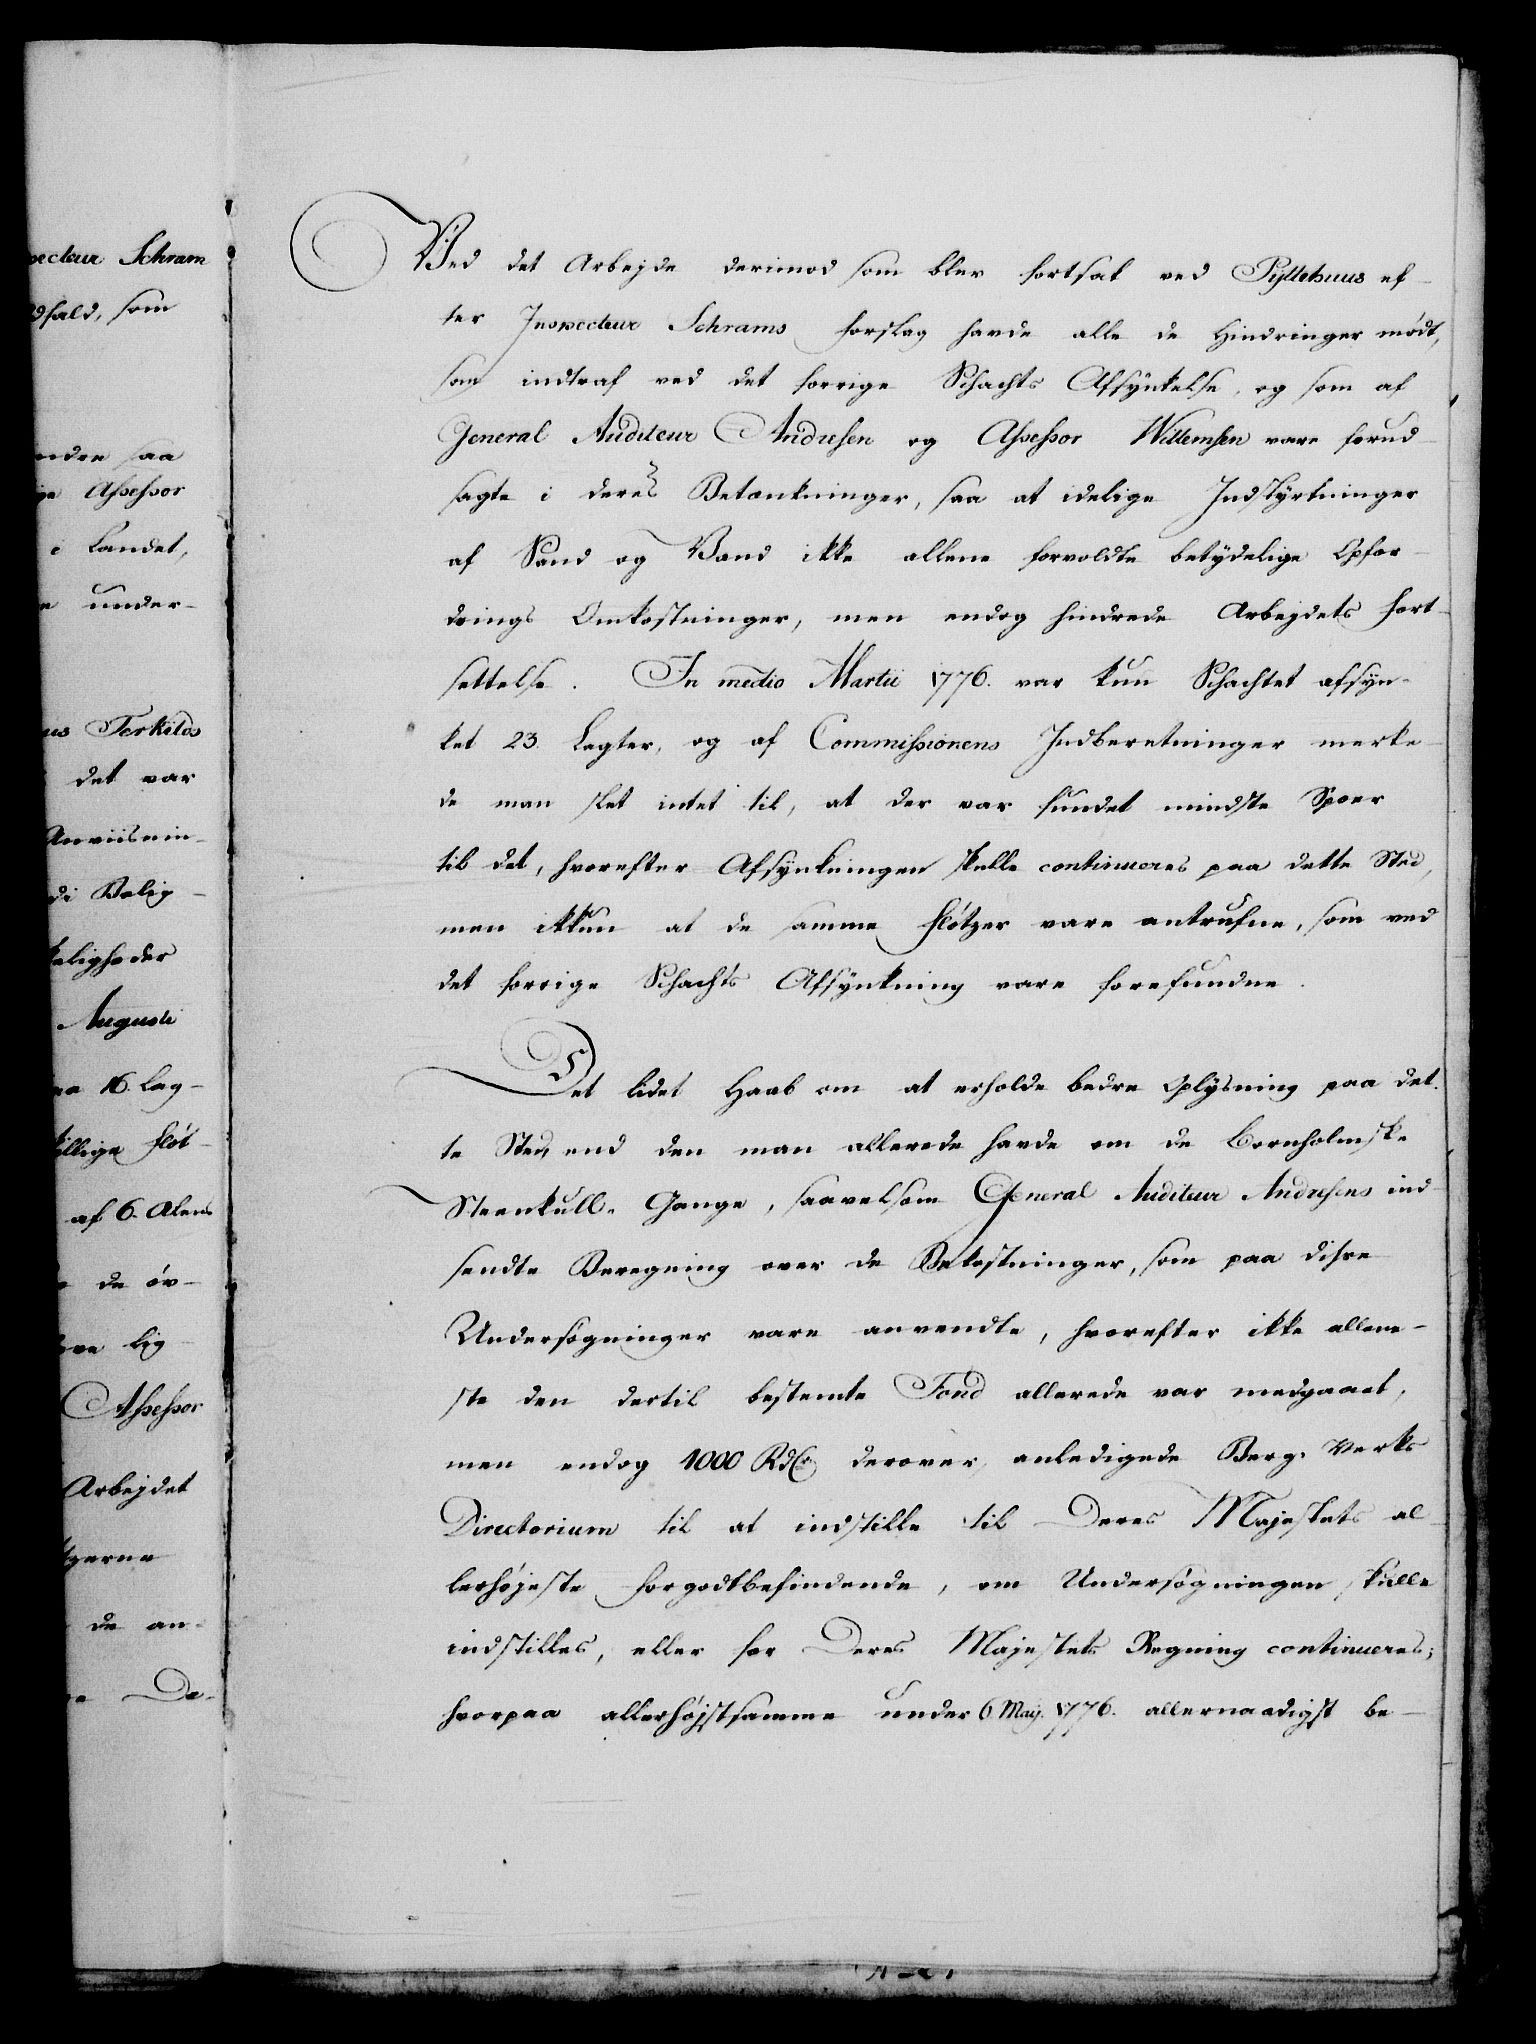 pecteur Schram
dfald, som
ndre saa
ige Assessor
i Landet,
e under-
us Terkilds
det var
Anviisnin-
di Bolig-
keligheder
Augusti
aa 16. Lag-
killige Flöt-
af 6. Alens
de öv-
ve lig
Assessor
Arbejdet
tzerne
de an-
De-
Ved det Arbejde derimod som blev fortsat ved Pyttehuus ef-
ter Inspecteur Schrams Forslag havde alle de Hindringer mödt,
som indtraf ved det forrige Schachts Afsynkelse, og som af
General Auditeur Andresen og Assessor Willemsen vare forud-
sagte i deres Betænkninger, saa at idelige Indstyrtninger
af Sand og Vand ikke allene forvoldte betydelige Opfor-
drings Omkostninger, men endog hindrede Arbejdets Fort-
settelse. In medio Martii 1776. var kun Schachtet afsyn-
ket 23. Lagter, og af Commissionens Indberetninger merke-
de man slet intet til, at der var fundet mindste Spoer
til det, hvorefter Afsynkningen skulle continueres paa dette Sted,
men ikkun at de samme Flötzer vare antrufne, som ved
det forrige Schachts Afsynkning vare forefundne.
Det lidet Haab om at erholde bedre Oplysning paa det-
te Sted, end den man allerede havde om de Bornholmske
Steenkull-Gange, saavelsom General Auditeur Andresens ind-
sendte Beregning over de Bekostninger, som paa disse
Undersögninger vare anvendte, hvorefter ikke allene-
ste den dertil bestemte Fond allerede var medgaaet,
men endog 1000 Rdlr derover, anledigede Berg-Verks
Directorium til at indstille til Deres Majestets al-
lerhöjeste Forgodtbefindende, om Undersögningen skulle
indstilles, eller for Deres Majestets Regning continueres;
hvorpaa allerhöjstsamme under 6 Maij. 1776. allernaadigst be-